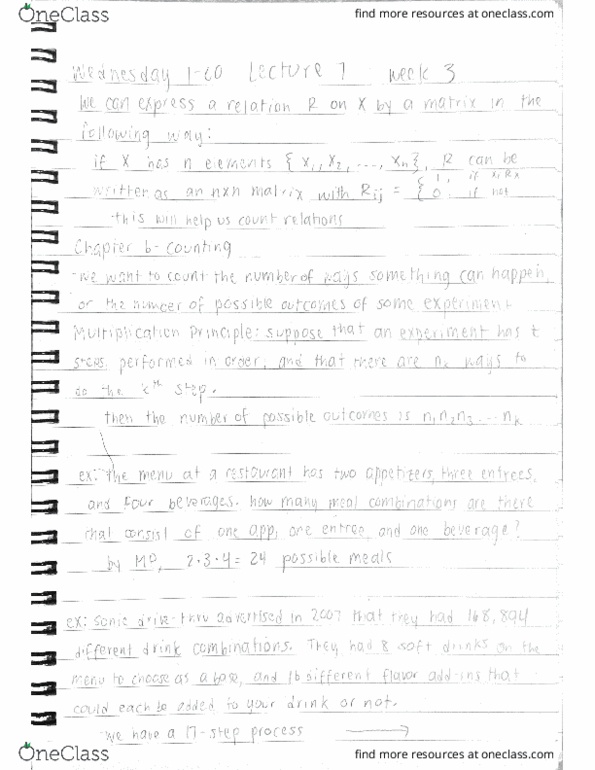 OneClass
find more resources at oneclass.com
Wednesday 1-60 Lecture 7 week 3
We can express a relation R on X by a matrix in the
following way:
if X has n elements {x₁, x₂, ..., xₙ}, R can be
written as an nxn matrix with Rij = { 1, if xᵢRxⱼ
0, if not
this will help us count relations
Chapter 6 - counting
- we want to count the number of ways something can happen,
or the number of possible outcomes of some experiment
Multiplication Principle: suppose that an experiment has t
steps, performed in order, and that there are nₖ ways to
do the kth step.
then the number of possible outcomes is n₁n₂n₃...nₖ
ex: The menu at a restaurant has two appetizers, three entrees,
and four beverages. how many meal combinations are there
that consist of one app, one entree, and one beverage?
by MP, 2·3·4 = 24 possible meals
ex: Sonic drive-thru advertised in 2007 that they had 168,894
different drink combinations. They had 8 soft drinks on the
menu to choose as a base, and 16 different flavor add-ins that
could each be added to your drink or not.
- we have a 17-step process →
OneClass
find more resources at oneclass.com